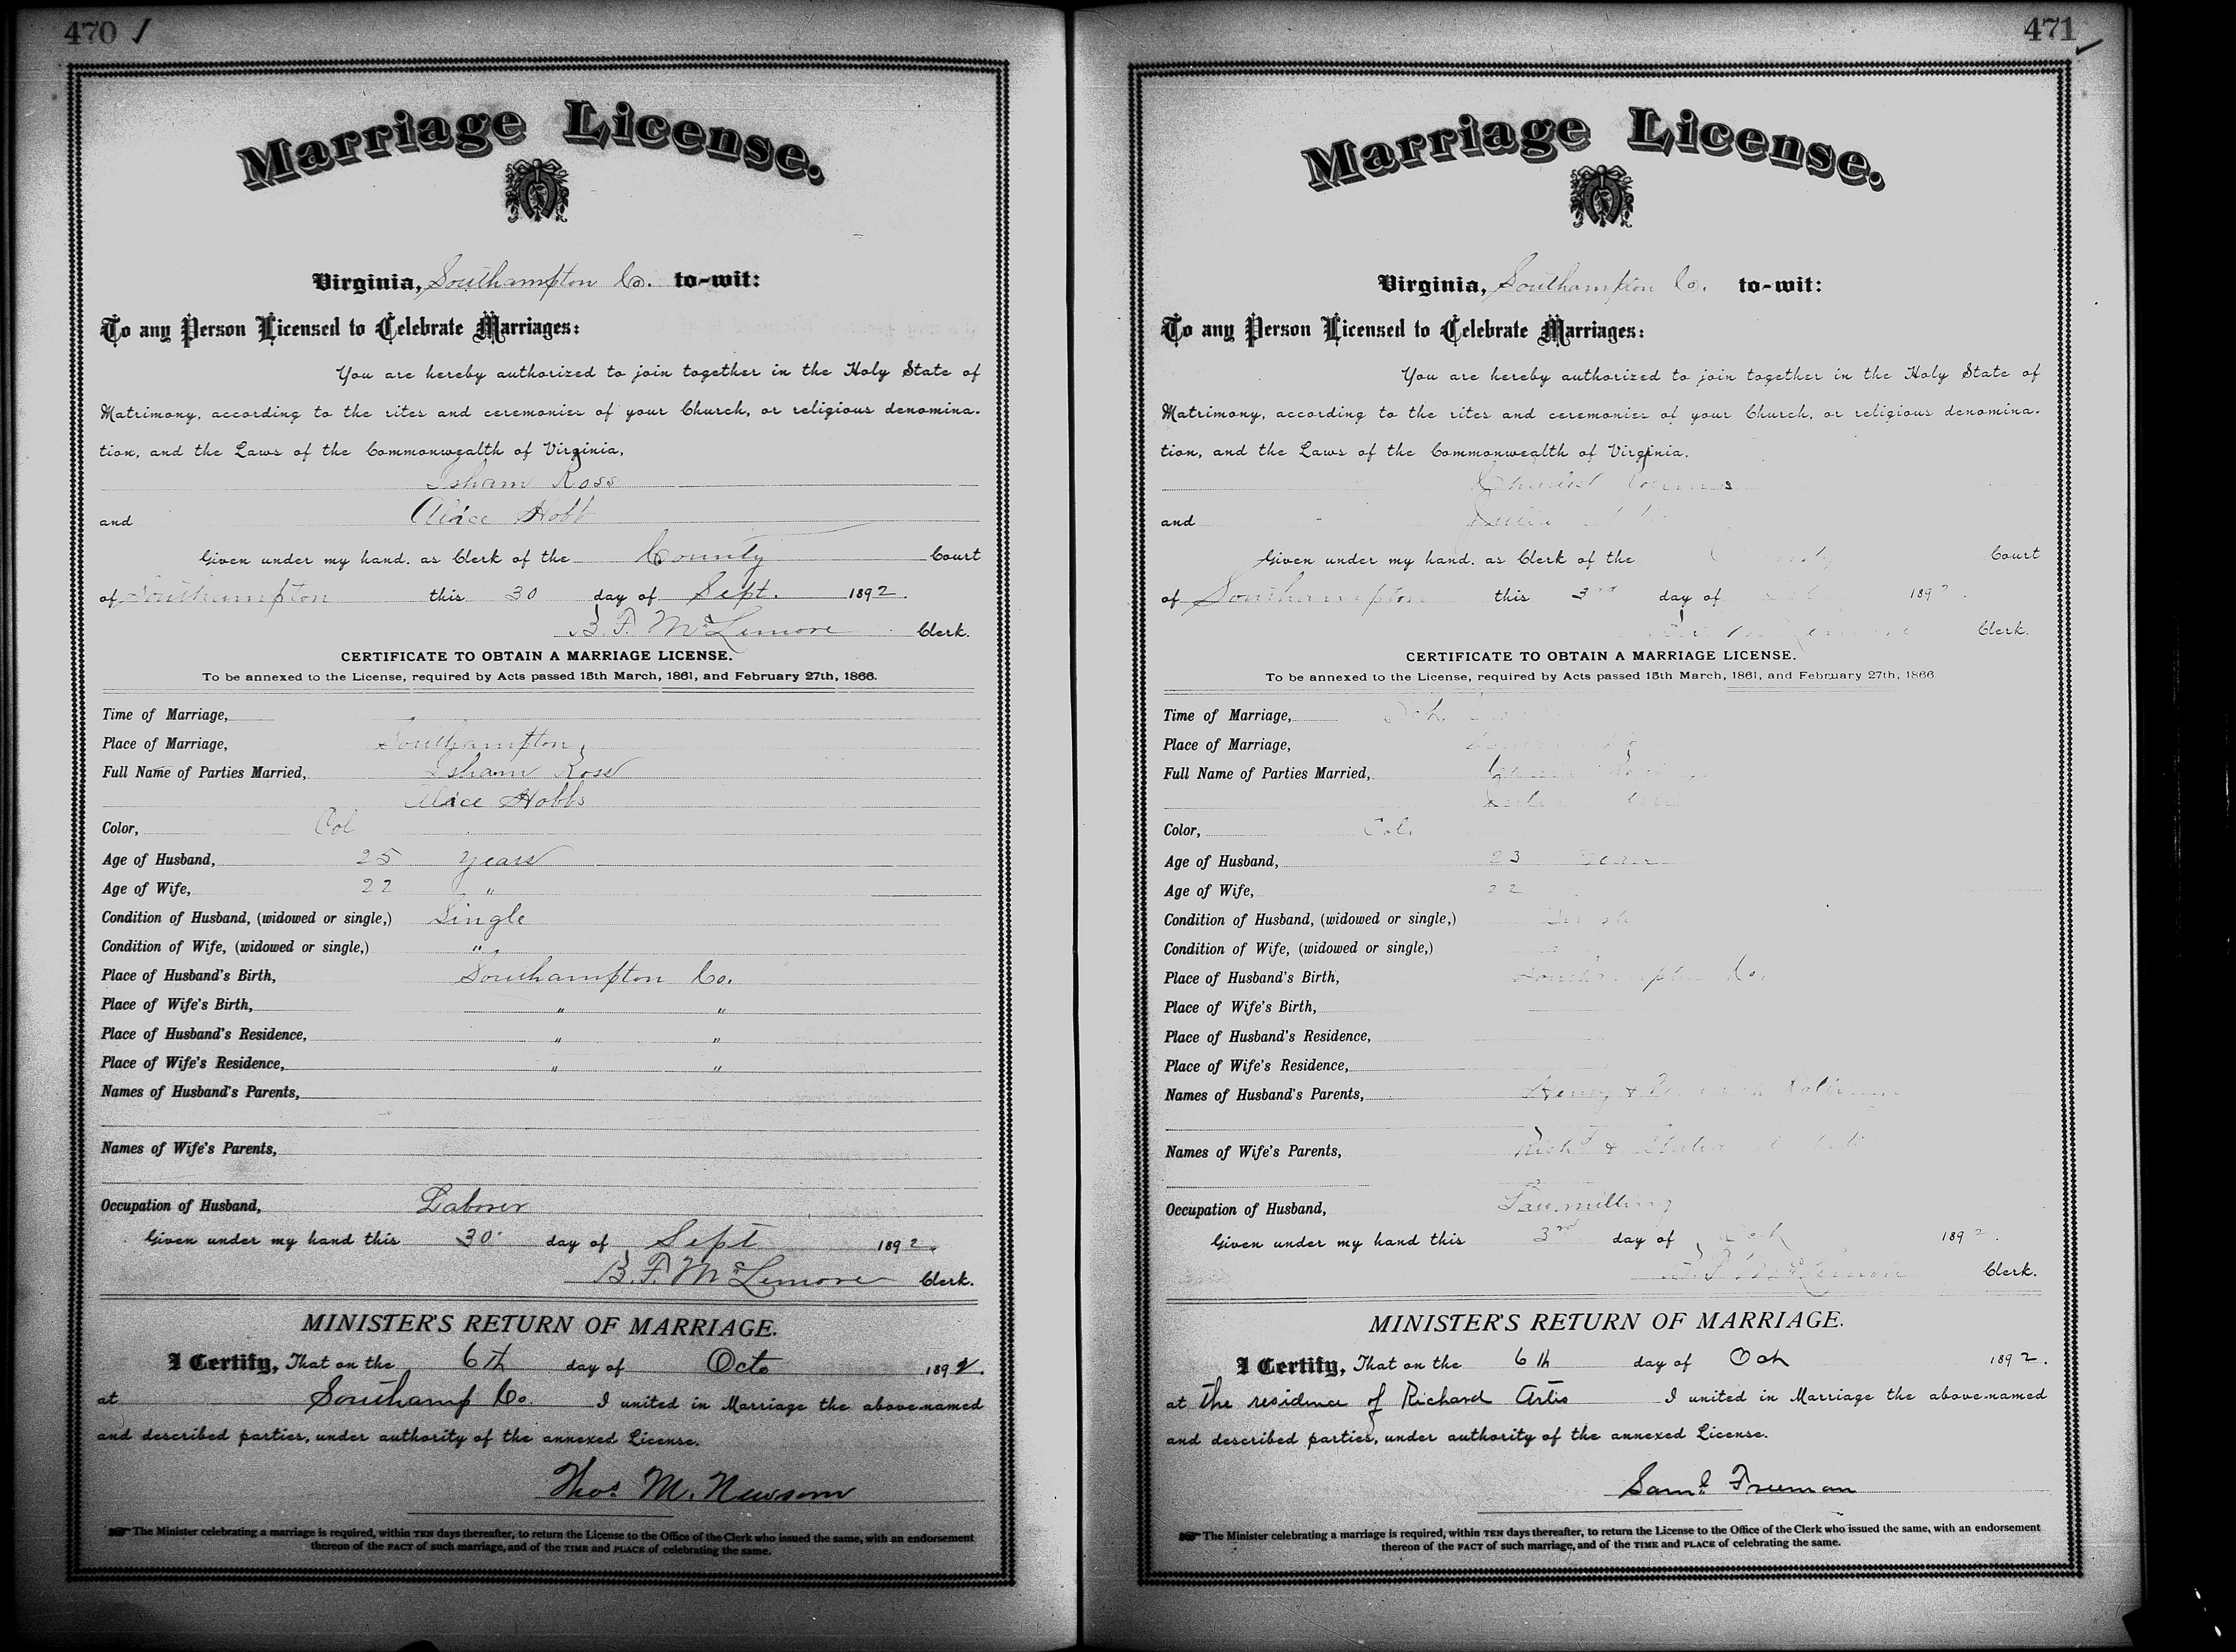 470
Marriage License.
Virginia, Southampton Co. to-wit:
To any Person Licensed to Celebrate Marriages:
You are hereby authorized to join together in the Holy State of
Matrimony, according to the rites and ceremonies of your Church, or religious denomina-
tion, and the Laws of the Commonwealth of Virginia,
Isham Ross
and Alice Hobb
Given under my hand, as Clerk of the County Court
of Southampton this 30 day of Sept. 1892.
B. F. McLemore Clerk.
CERTIFICATE TO OBTAIN A MARRIAGE LICENSE.
To be annexed to the License, required by Acts passed 15th March, 1861, and February 27th, 1866.
Time of Marriage,
Place of Marriage, Southampton
Full Name of Parties Married, Isham Ross
Alice Hobbs
Color, Col
Age of Husband, 25 years
Age of Wife, 22 "
Condition of Husband, (widowed or single,) Single
Condition of Wife, (widowed or single,) "
Place of Husband's Birth, Southampton Co.
Place of Wife's Birth, " "
Place of Husband's Residence, " "
Place of Wife's Residence, " "
Names of Husband's Parents,
Names of Wife's Parents,
Occupation of Husband, Laborer
Given under my hand this 30 day of Sept 1892.
B. F. McLemore Clerk.
MINISTER'S RETURN OF MARRIAGE.
I Certify, That on the 6th day of Octo 1892.
at Southamp Co. I united in Marriage the above-named
and described parties, under authority of the annexed License.
Thos. M. Newsom
The Minister celebrating a marriage is required, within TEN days thereafter, to return the License to the Office of the Clerk who issued the same, with an endorsement
thereon of the FACT of such marriage, and of the TIME and PLACE of celebrating the same.
471
Marriage License.
Virginia, Southampton Co. to-wit:
To any Person Licensed to Celebrate Marriages:
You are hereby authorized to join together in the Holy State of
Matrimony, according to the rites and ceremonies of your Church, or religious denomina-
tion, and the Laws of the Commonwealth of Virginia,
Charles
and
Given under my hand, as Clerk of the Court
of Southampton this 3rd day of 189
Clerk.
CERTIFICATE TO OBTAIN A MARRIAGE LICENSE.
To be annexed to the License, required by Acts passed 15th March, 1861, and February 27th, 1866
Time of Marriage,
Place of Marriage,
Full Name of Parties Married,
Color, Col.
Age of Husband, 23
Age of Wife, 22
Condition of Husband, (widowed or single,)
Condition of Wife, (widowed or single,)
Place of Husband's Birth, Southampton Co.
Place of Wife's Birth,
Place of Husband's Residence,
Place of Wife's Residence,
Names of Husband's Parents, Henry &
Names of Wife's Parents, Richd &
Occupation of Husband, Sawmilling
Given under my hand this 3rd day of Oct 189
B F McLemore Clerk.
MINISTER'S RETURN OF MARRIAGE.
I Certify, That on the 6th day of Oct 1892.
at the residence of Richard Artis I united in Marriage the above-named
and described parties, under authority of the annexed License.
Saml. Freeman
The Minister celebrating a marriage is required, within TEN days thereafter, to return the License to the Office of the Clerk who issued the same, with an endorsement
thereon of the FACT of such marriage, and of the TIME and PLACE of celebrating the same.